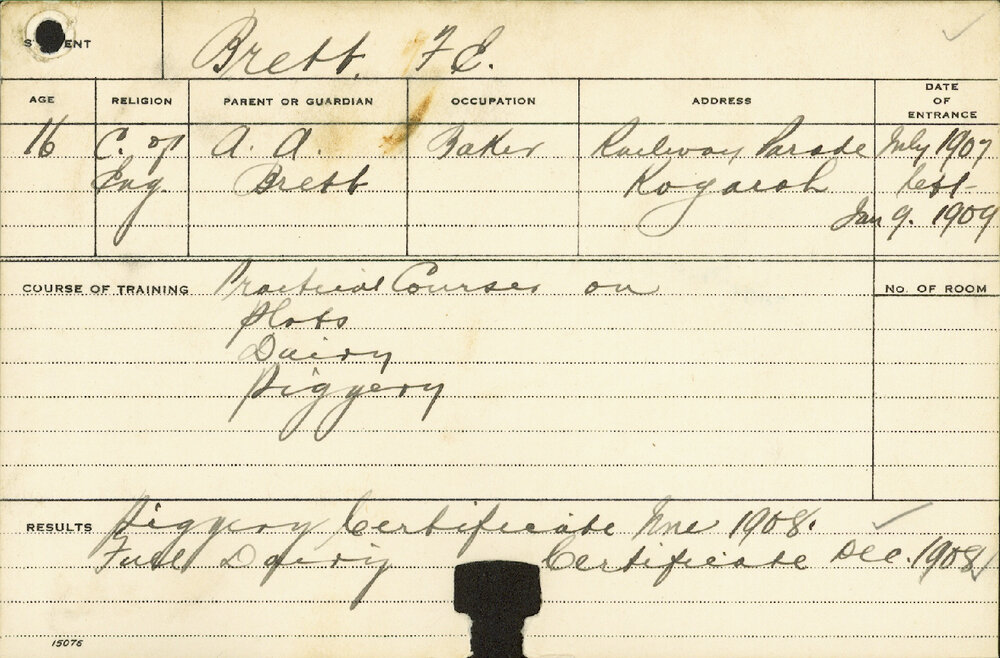 STUDENT Brett, F E.
AGE RELIGION PARENT OR GUARDIAN OCCUPATION ADDRESS DATE OF ENTRANCE
16 C. of A. A. Baker Railway Parade July 1907
Eng Brett Kogarah left
Jan 9. 1909
COURSE OF TRAINING Practical Courses on No. OF ROOM
Plots
Dairy
Piggery
RESULTS Piggery Certificate June 1908.
Full Dairy Certificate Dec. 1908
15076